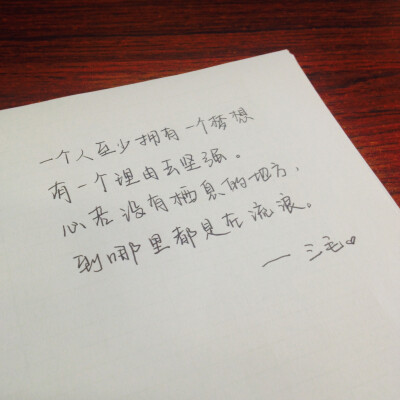 一个人至少拥有一个梦想
有一个理由去坚强。
心若没有栖息的地方,
到哪里都是在流浪。
— 三毛